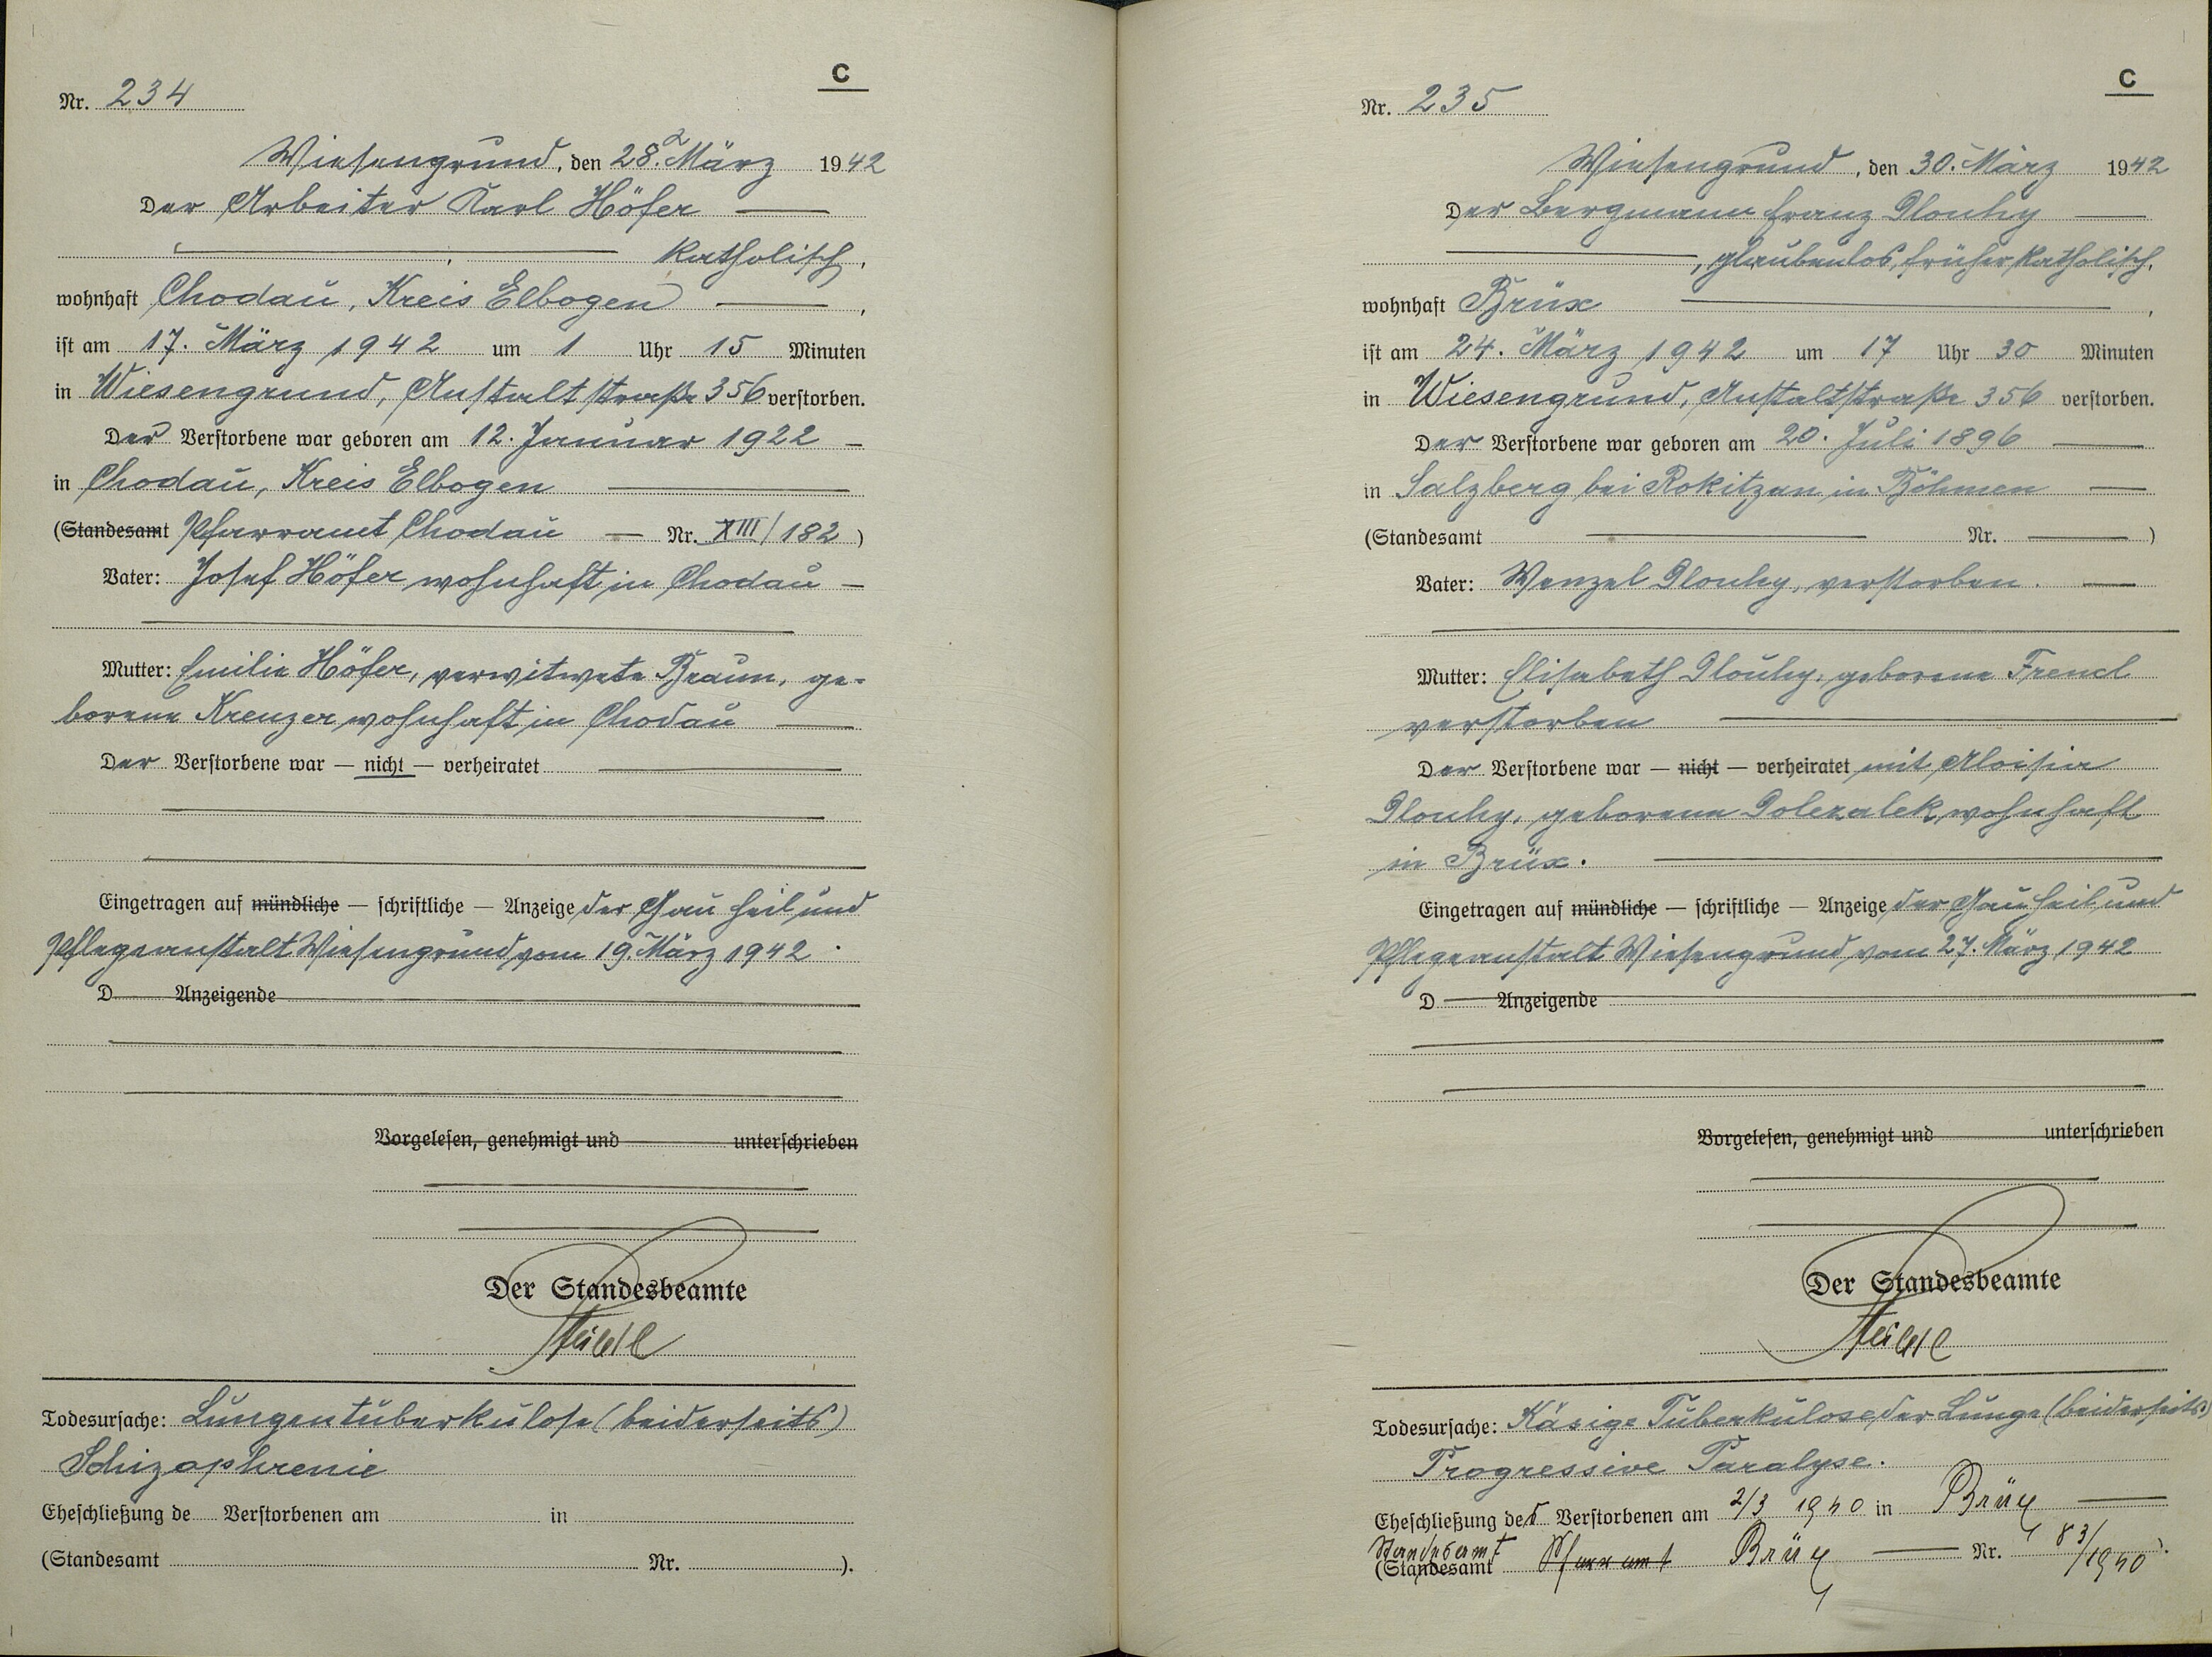 C
Nr. 234
Wiesengrund, den 28. März 1942
Der Arbeiter Karl Höfer
katholisch,
wohnhaft Chodau, Kreis Elbogen,
ist am 17. März 1942 um 1 Uhr 15 Minuten
in Wiesengrund, Anstaltstraße 356 verstorben.
Der Verstorbene war geboren am 12. Januar 1922
in Chodau, Kreis Elbogen
(Standesamt Pfarramt Chodau — Nr. XIII/182)
Vater: Josef Höfer wohnhaft in Chodau —
Mutter: Emilie Höfer, verwitwete Braun, ge-
borene Kreuzer wohnhaft in Chodau
Der Verstorbene war — nicht — verheiratet
Eingetragen auf mündliche — schriftliche — Anzeige der Gau Heil und
Pflegeanstalt Wiesengrund vom 19. März 1942.
D Anzeigende
Vorgelesen, genehmigt und unterschrieben
Der Standesbeamte
Todesursache: Lungentuberkulose (beiderseits)
Schizophrenie
Eheschließung de Verstorbenen am in
(Standesamt Nr. ).
C
Nr. 235
Wiesengrund, den 30. März 1942
Der Bergmann Franz Dlouhy
, glaubenlos, früher katholisch,
wohnhaft Brüx,
ist am 24. März 1942 um 17 Uhr 30 Minuten
in Wiesengrund, Anstaltstraße 356 verstorben.
Der Verstorbene war geboren am 20. Juli 1896
in Salzberg bei Rokitzan in Böhmen
(Standesamt Nr. )
Vater: Wenzel Dlouhy, verstorben.
Mutter: Elisabeth Dlouhy, geborene Frencl
verstorben
Der Verstorbene war — nicht — verheiratet mit Aloisia
Dlouhy, geborene Dolezalek, wohnhaft
in Brüx.
Eingetragen auf mündliche — schriftliche — Anzeige der Gau Heil und
Pflegeanstalt Wiesengrund vom 27. März 1942
D Anzeigende
Vorgelesen, genehmigt und unterschrieben
Der Standesbeamte
Todesursache: Käsige Tuberkulose der Lunge (beiderseits)
Progressive Paralyse.
Eheschließung des Verstorbenen am 2/3 1940 in Brüx
Standesamt
(Standesamt Pfarramt Brüx — Nr. 83/1940).